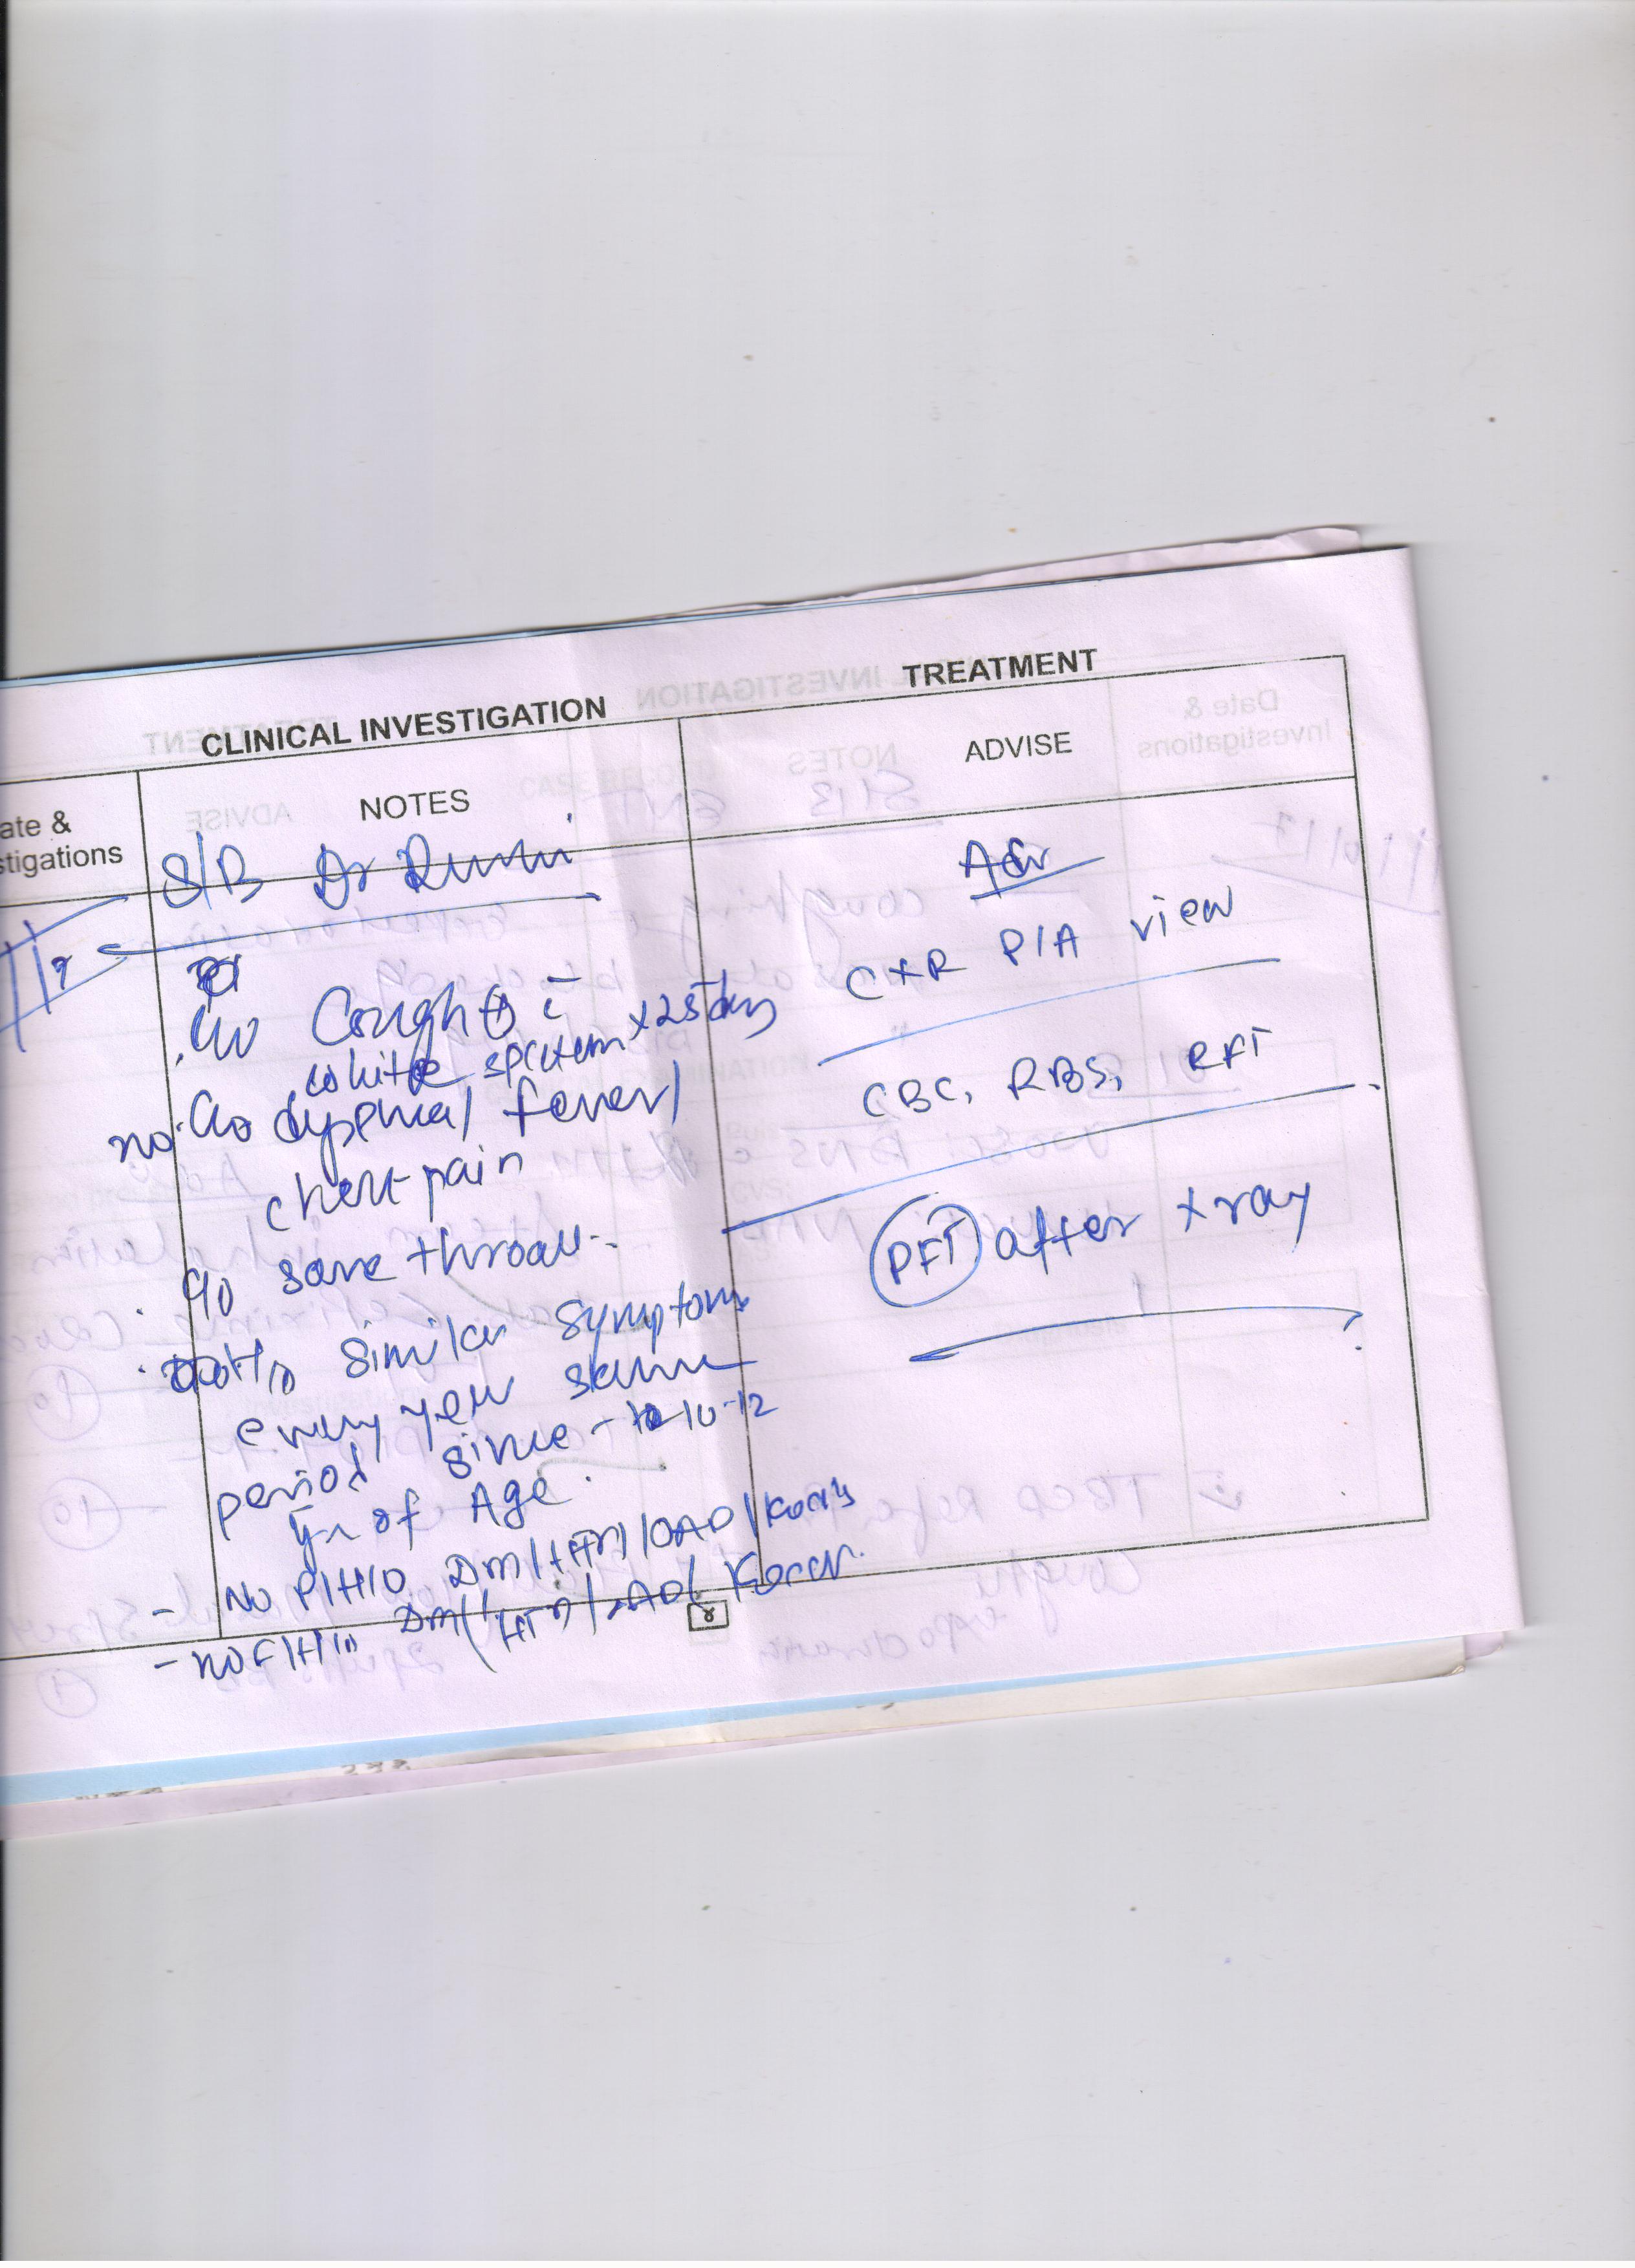 CLINICAL INVESTIGATION
TREATMENT
ate &
stigations
NOTES
ADVISE
S/B Dr
c/o Cough ⊕ c̄
white sputum x 25 days
no c/o dyspnea/ fever/
chest pain
c/o sore throat
H/o similar symptoms
every year same
period since 10-12
yr of Age.
- No P/H/O DM/HTN/OAD/Koch's
- no F/H/o DM/HTN/OAD/Koch's.
Adv
CXR P/A view
CBC, RBS, RFT
PFT after xray
8